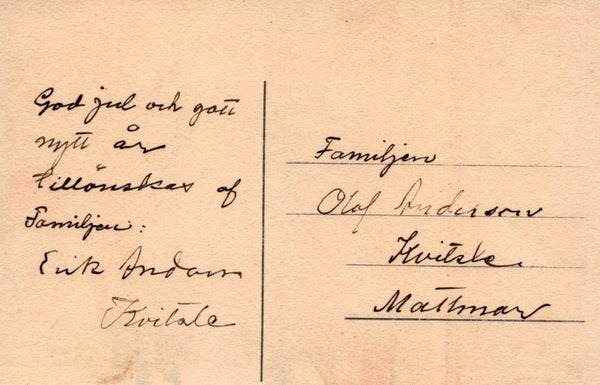 God jul och gott
nytt år
tillönskas af
Familjen:
Erik Anderson
Kvitsle
Familjen
Olof Anderson
Kvitsle.
Mattmar